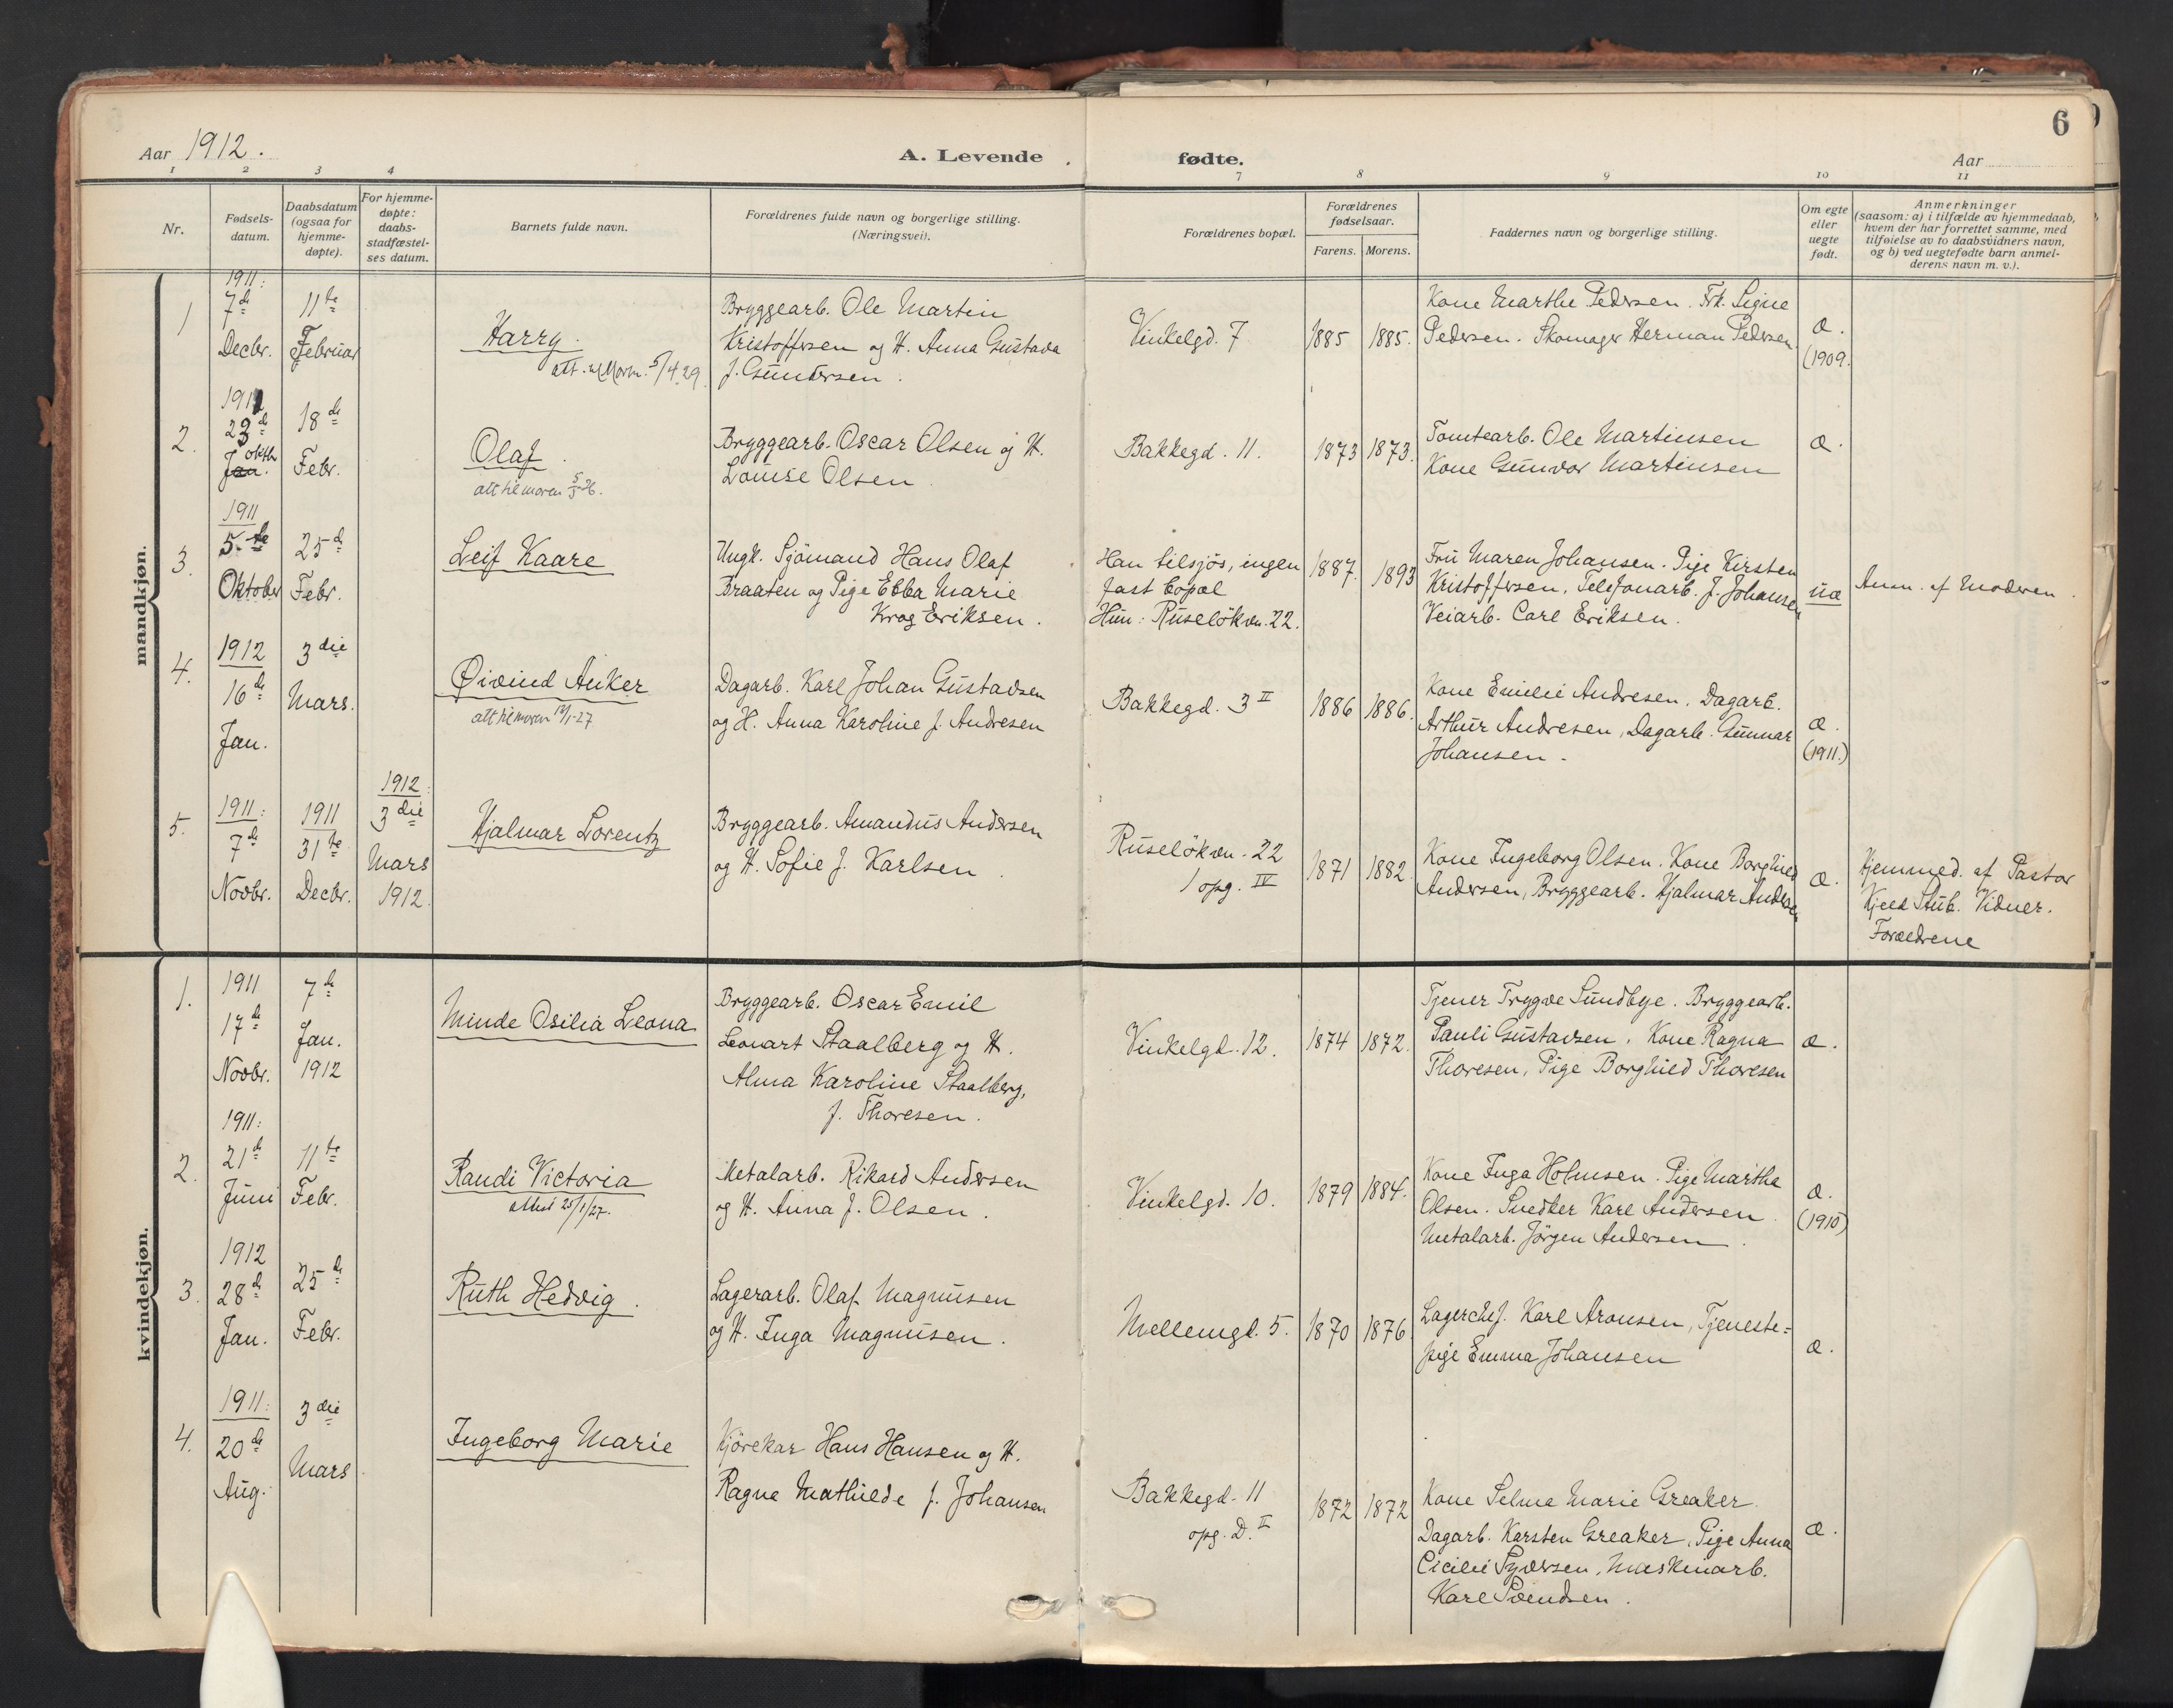 6
Aar 1912.
A. Levende fødte.
Aar
1 2 3 4 7 8 9 10 11
Nr.
Fødsels-
datum.
Daabsdatum
(ogsaa for
hjemme-
døpte).
For hjemme-
døpte:
daabs-
stadfæstel-
ses datum.
Barnets fulde navn.
Forældrenes fulde navn og borgerlige stilling.
(Næringsvei).
Forældrenes bopæl.
Forældrenes
fødselsaar.
Farens. Morens.
Faddernes navn og borgerlige stilling.
Om egte
eller
uegte
født.
Anmerkninger
(saasom: a) i tilfælde av hjemmedaab,
hvem der har forrettet samme, med
tilføielse av to daabsvidners navn,
og b) ved uegtefødte barn anmel-
derens navn m. v.).
mandkjøn.
1
1911:
7de
Decbr.
11te
Februar
Harry.
att. til Moren. 5/4 29
Bryggearb. Ole Martin
Kristoffersen og H. Anna Gustava
f. Gundersen.
Vinkelgd. 7
1885 1885.
Kone Marthe Pedersen. Frk. Signe
Pedersen. Skomager Herman Pedersen
æ.
(1909.
2.
1911
23de
Jan. oktbr
18de
Febr.
Olaf.
att til moren 5/5 26.
Bryggearb. Oscar Olsen og H.
Louise Olsen.
Bakkegd. 11.
1873 1873.
Tomtearb. Ole Martinsen
Kone Gunvor Martinsen
æ.
3.
1911
5.te
Oktober
25de
Febr.
Leif Kaare
Ungk. Sjömand Hans Olaf
Braaten og Pige Ebba Marie
Krog Eriksen.
Han tilsjøs, ingen
fast bopæl
Hun: Ruselökvn. 22.
1887. 1893
Fru Maren Johansen. Pige Kirsten
Kristoffersen, Telefonarb. J. Johansen
Veiarb. Carl Eriksen.
uæ
Anm. af Moderen.
4.
1912
16de
Jan.
3die
Mars.
Øivind Anker
att til moren 18/1-27
Dagarb. Karl Johan Gustavsen
og H. Anna Karoline f. Andresen
Bakkegd. 3 II
1886 1886.
Kone Emilie Andresen, Dagarb.
Arthur Andresen, Dagarb. Gunnar
Johansen.
æ.
(1911.)
5.
1911:
7de
Novbr.
1911
31te
Decbr.
1912:
3die
Mars
1912.
Hjalmar Lorentz
Bryggearb. Amandus Andersen
og H. Sofie f. Karlsen.
Ruselökvn. 22
1 opg. IV
1871 1882.
Kone Ingeborg Olsen. Kone Borghild
Andersen, Bryggearb. Hjalmar Andersen
æ.
Hjemmed. af Pastor
Kjeld Stub. Vidner.
Forældrene
kvindekjøn.
1.
1911
17de
Novbr.
7de
Jan.
1912
Minde Osilia Leona
Bryggearb. Oscar Emil
Leonart Staalberg og H.
Alma Karoline Staalberg,
f. Thoresen.
Vinkelgd. 12.
1874 1872.
Tjener Trygve Sundbye. Bryggearb.
Pauli Gustavsen. Kone Ragna
Thoresen, Pige Borghild Thoresen
æ.
2.
1911:
21de
Juni
11te
Febr.
Randi Victoria
attest 25/1/27.
Metalarb. Rikard Andersen
og H. Anna f. Olsen.
Vinkelgd. 10.
1879 1884.
Kone Inga Holmsen. Pige Martha
Olsen. Snedker Karl Andersen.
Metalarb. Jörgen Andersen.
æ.
(1910)
3.
1912
28de
Jan.
25de
Febr.
Ruth Hedvig.
Lagerarb. Olaf Magnusen
og H. Inga Magnusen.
Mellemgd. 5.
1870 1876
Lagerchef. Karl Aronsen, Tjeneste=
pige Emma Johansen
æ.
4.
1911:
20de
Aug.
3die
Mars.
Ingeborg Marie
Kjörekar Hans Hansen og H.
Ragna Mathilde f. Johansen
Bakkegd. 11
opg. D. II
1872 1872
Kone Selma Marie Greaker.
Dagarb. Karsten Greaker, Pige Anna
Cicilie Syversen, Maskinarb.
Karl Svendsen.
æ.